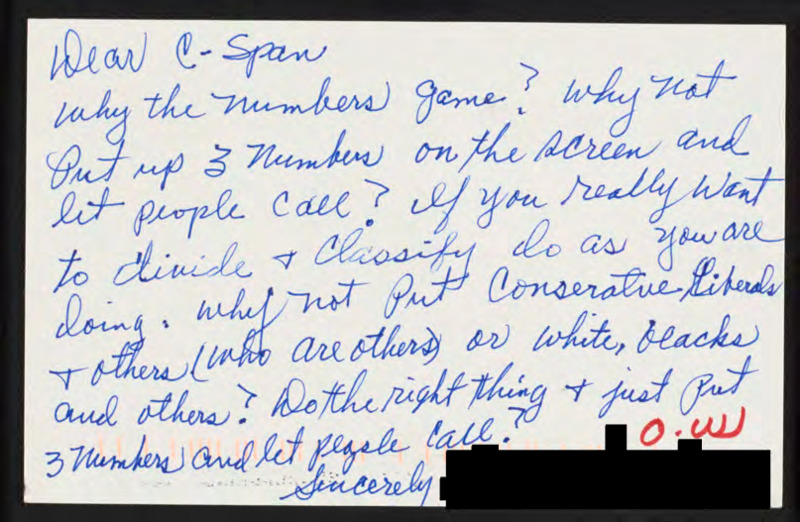 Dear C-Span
why the numbers game? Why not
Put up 3 Numbers on the screen and
let people call? If you really want
to divide + Classify do as you are
doing. Why not Put Conserative Liberals
+ others (who are others) or white, blacks
and others? Do the right thing + just Put
3 Numbers and let people call.?
O.W
Sincerely